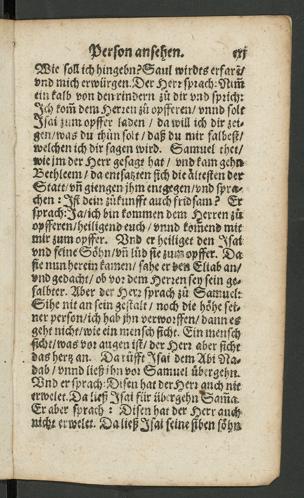 Person ansehen. cxj
Wie soll ich hingehn? Saul wirdts erfarē/
vnd mich erwürgen. Der Herr sprach: Nim̄
ein kalb von den rindern zů dir vnd sprich:
Ich kom̄ dem Herren zů opfferen/ vnnd solt
Isai zum opffer laden / da will ich dir zei-
gen/ was du thůn solt / daß du mir salbest/
welchen ich dir sagen wird. Samuel thet/
wie jm der Herr gesagt hat / vnd kam gehn
Bethleem / da entsatzten sich die ältesten der
Statt/ vn̄ giengen jhm entgegen/ vnd spra-
chen: Ist dein zůkunfft auch fridsam? Er
sprach: Ja/ ich bin kommen dem Herren zů
opfferen/ heiligend euch / vnnd kom̄end mit
mir zum opffer. Vnd er heiliget den Isai
vnd seine Söhn/ vn̄ lůd sie zum opffer. Da
sie nun herein kamen/ sahe er den Eliab an/
vnd gedacht/ ob vor dem Herren sey sein ge-
salbeter. Aber der Herr sprach zů Samuel:
Sihe nit an sein gestalt / noch die höhe sei-
ner person/ ich hab jhn verworffen/ dann es
geht nicht/ wie ein mensch sicht. Ein mensch
sicht/ was vor augen ist/ der Herr aber sicht
das hertz an. Da rüfft Isai dem Abi Na-
dab / vnnd ließ jhn vor Samuel übergehn.
Vnd er sprach: Disen hat der Herr auch nit
erwelet. Da ließ Isai für übergehn Sam̄a.
Er aber sprach: Disen hat der Herr auch
nicht erwelet. Da ließ Isai seine siben söhn